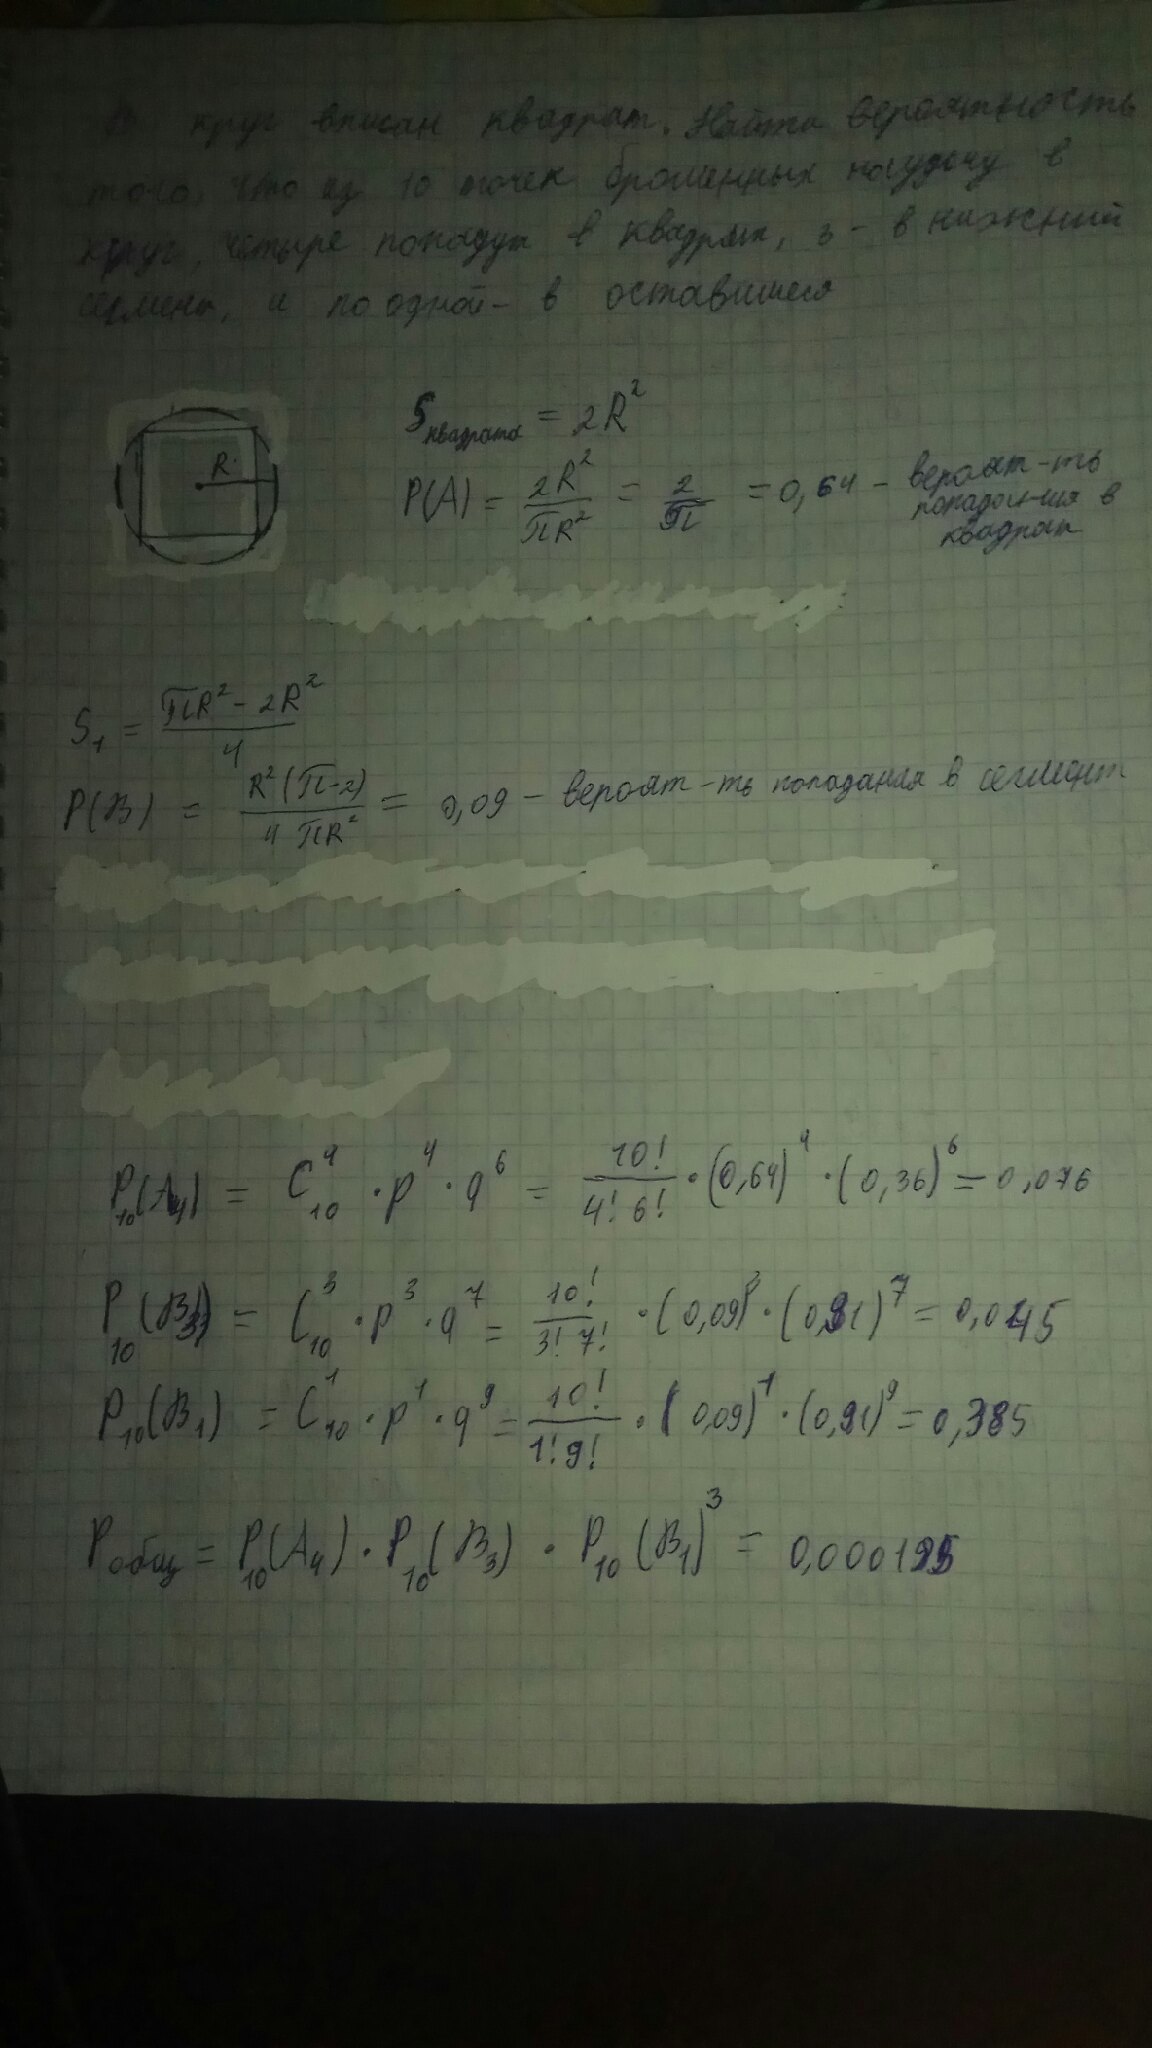 В круг вписан квадрат. Найти вероятность
того, что из 10 точек брошенных наудачу в
круг, четыре попадут в квадрат, 3 - в нижний
сегмент, и по одной - в оставшиеся
R
S квадрата = 2R²
P(A) = 2R²/πR² = 2/π = 0,64 - вероят-ть
попадан-ия в
квадрат
S₁ = (πR² - 2R²)/4
P(B) = R²(π-2)/4πR² = 0,09 - вероят-ть попадания в сегмент
P₁₀(A₄) = C₁₀⁴ · p⁴ · q⁶ = 10!/4! 6! · (0,64)⁴ · (0,36)⁶ = 0,076
P₁₀(B₃) = C₁₀³ · p³ · q⁷ = 10!/3! 7! · (0,09)³ · (0,91)⁷ = 0,045
P₁₀(B₁) = C₁₀¹ · p¹ · q⁹ = 10!/1! 9! · (0,09)¹ · (0,91)⁹ = 0,385
P общ = P₁₀(A₄) · P₁₀(B₃) · P₁₀(B₁)³ = 0,000195